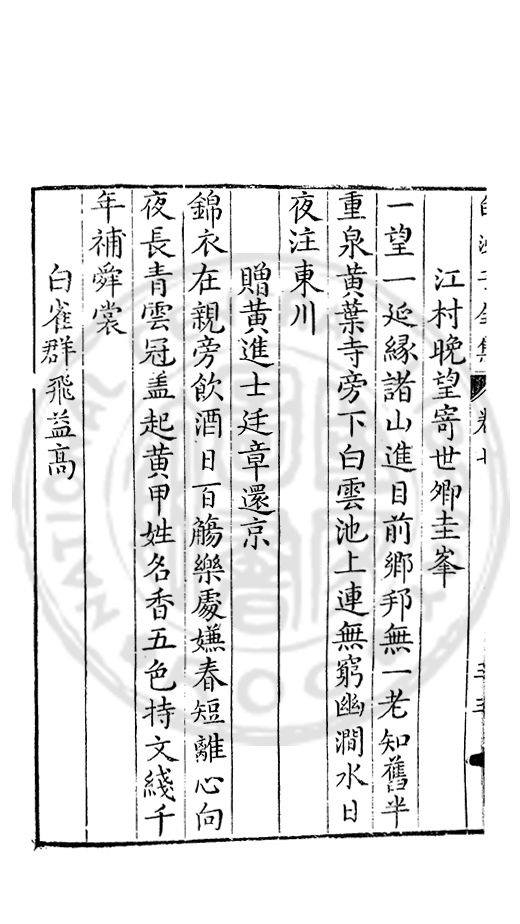 白沙子全集 卷七
江村晚望寄世卿圭峯
一望一延緣諸山進目前鄉邦無一老知舊半
重泉黃葉寺旁下白雲池上連無窮幽澗水日
夜注東川
贈黃進士廷章還京
錦衣在親旁飲酒日百觴樂處嫌春短離心向
夜長青雲冠盖起黃甲姓名香五色持文綫千
年補舜裳
白雀群飛益高